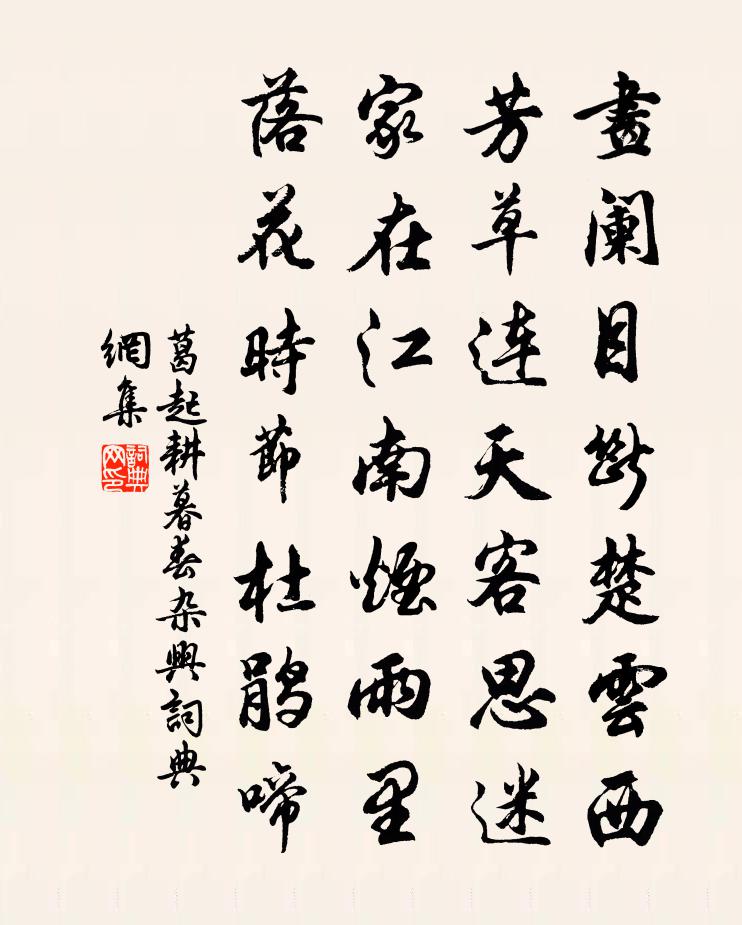 畫阑目斷楚雲西
芳草連天客思迷
家在江南煙雨里
落花時節杜鹃啼
葛起耕暮春杂興詞典
網集
詞典
网印